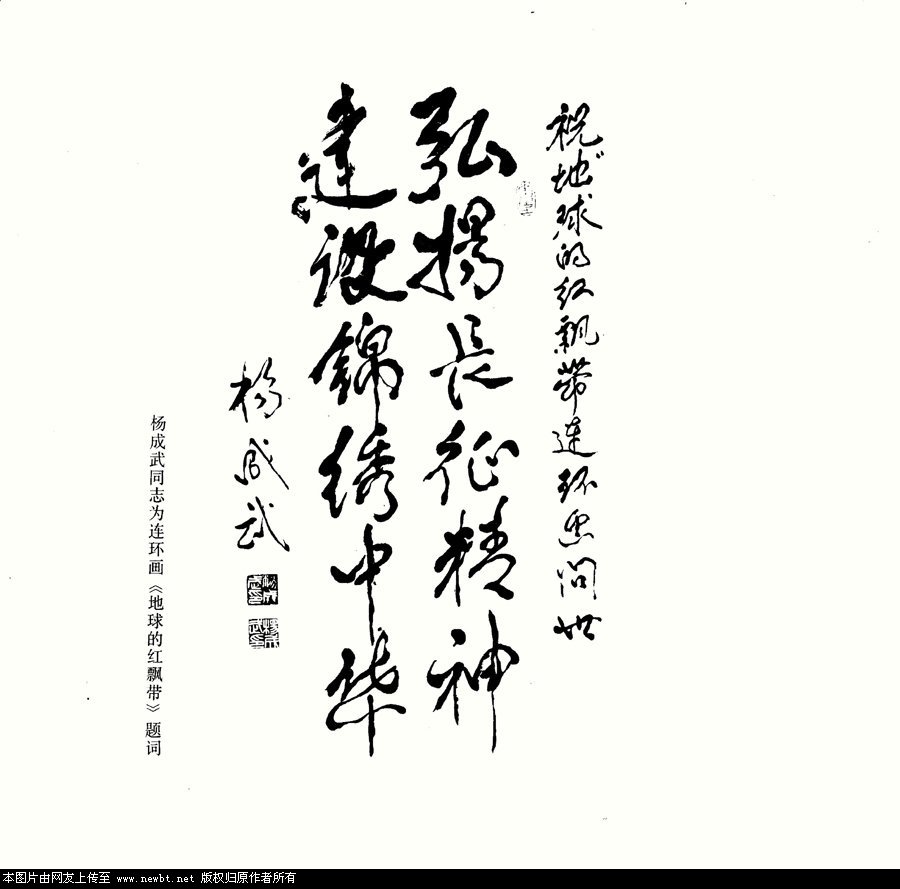 祝地球的红飘带连环画问世
弘扬长征精神
建设锦绣中华
杨成武
杨成武同志为连环画《地球的红飘带》题词
本图片由网友上传至 www.newbt.net 版权归原作者所有